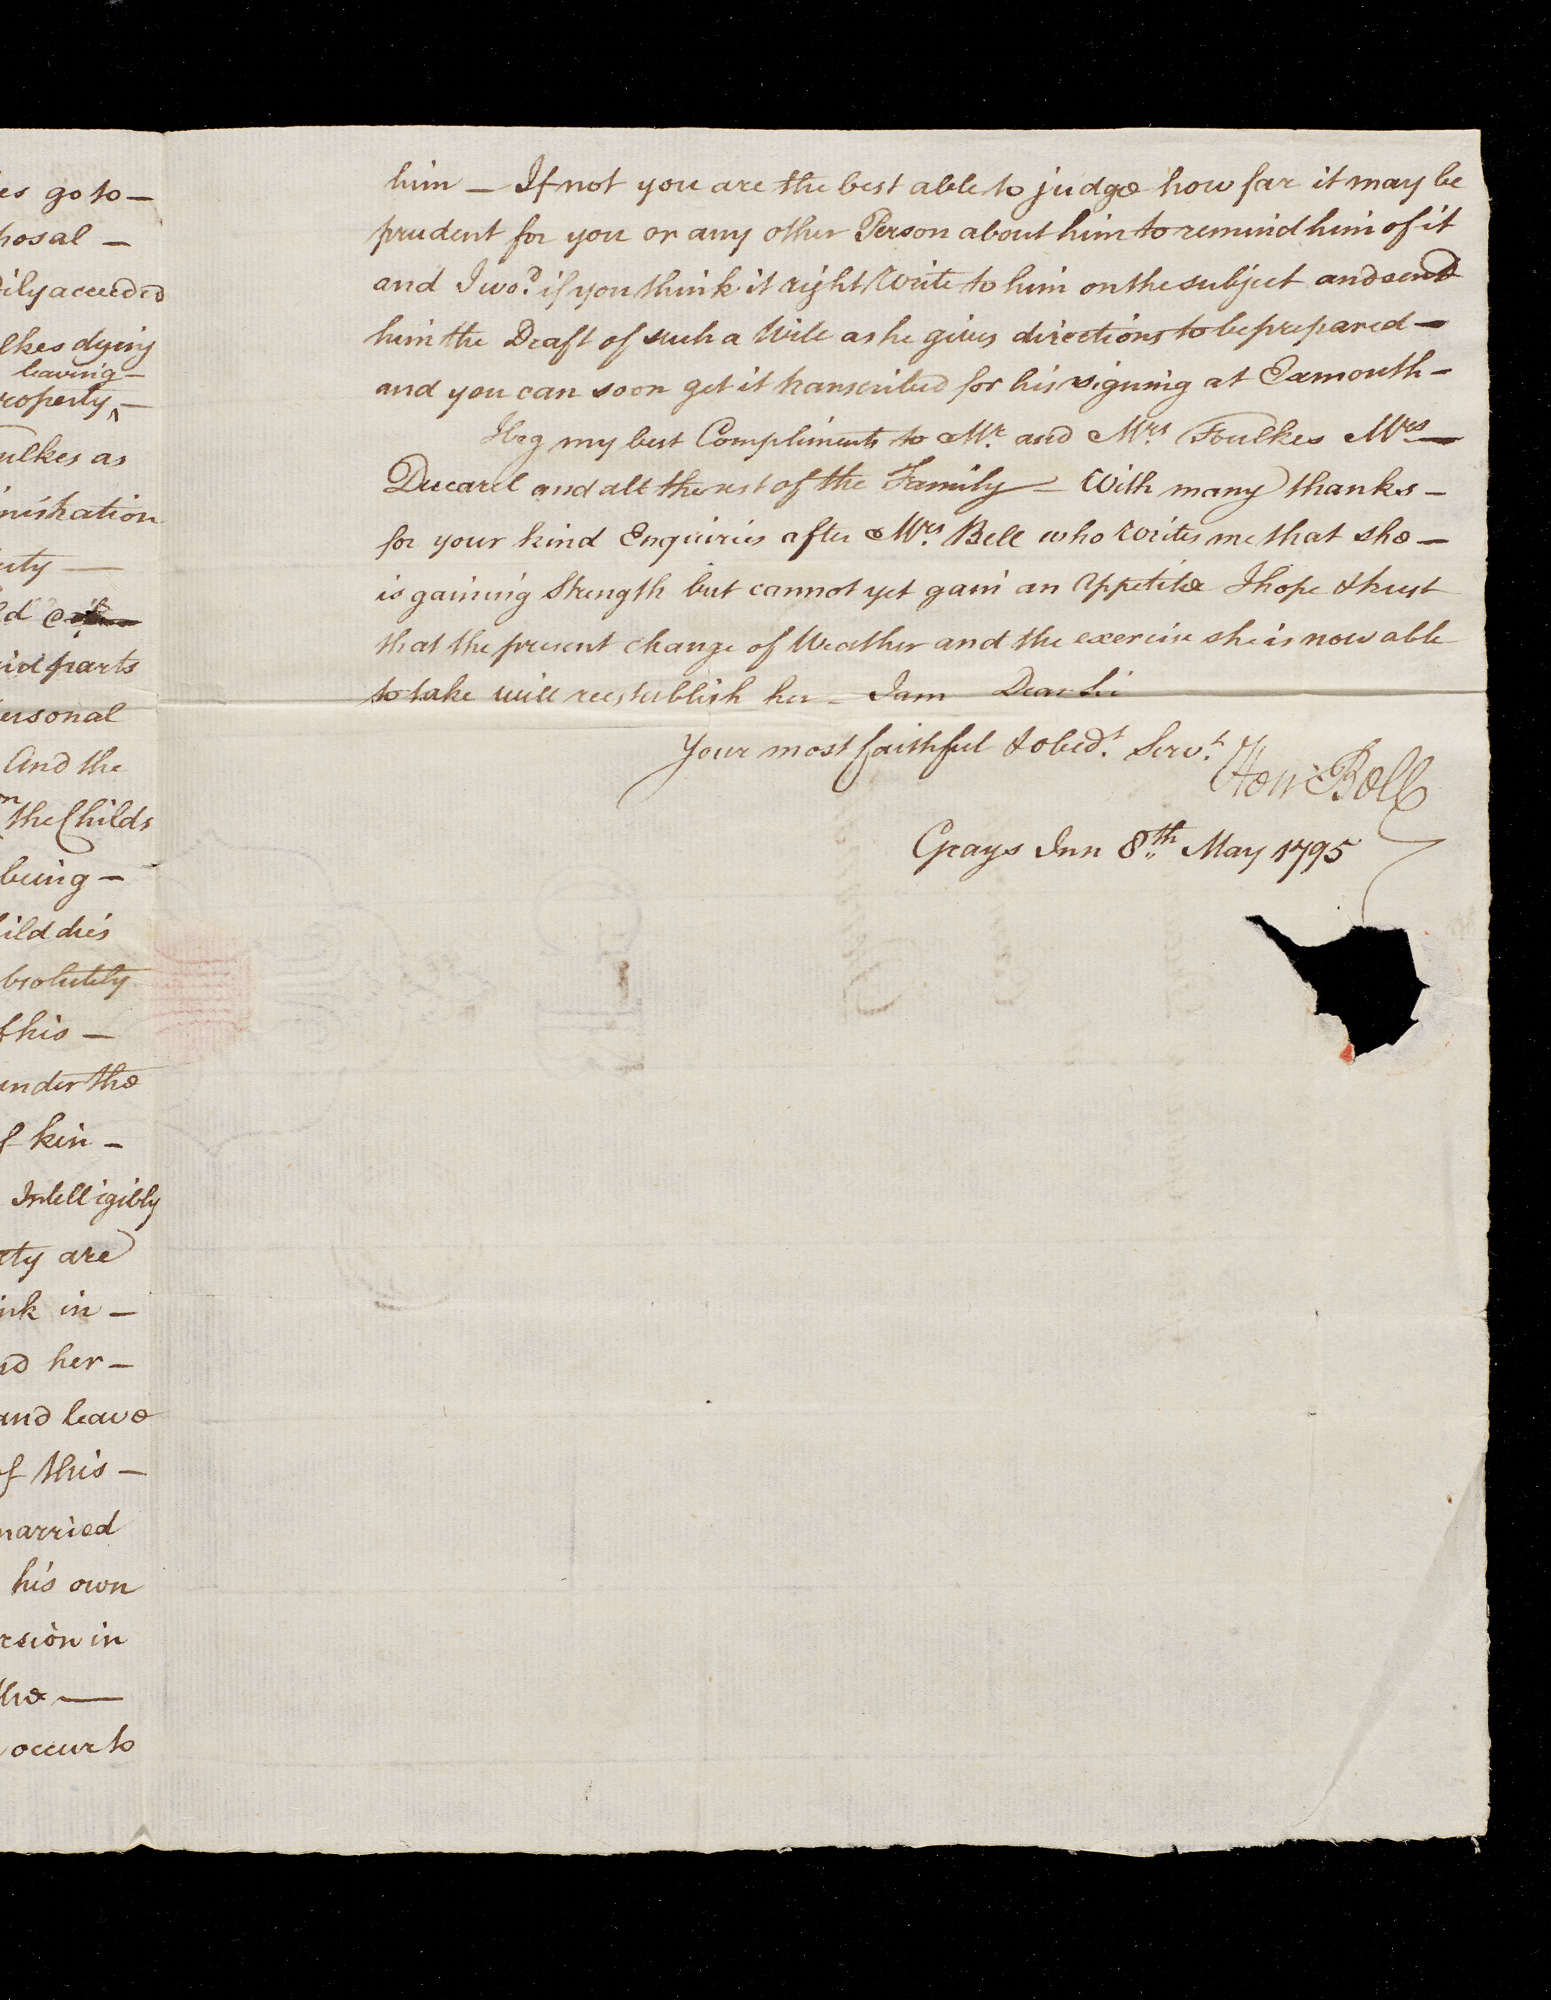 es go to —
posal —
dily acceeded
lkes dying
leaving —
roperty —
ulkes as
inistration
erty —
ld
id parts
ersonal
And the
on
the Childs
being —
ild dies
bsolutely
f his —
under the
f kin —
Intelligibly
rty are
ink in —
nd her —
and leave
of this —
married
his own
rsion in
the —
occur to
him — If not you are the best able to judge how far it may be
prudent for you or any other Person about him to remind him of it
and I wo.d if you think it right Write to him on the subject and send
him the Draft of such a Will as he gives directions to be prepared —
and you can soon get it transcribed for his signing at Exmouth —
I beg my best Compliments to Mr. and Mrs. Foulkes Mrs. —
Ducarel and all the rest of the Family — With many thanks —
for your kind Enquiries after Mrs. Bell who writes me that she —
is gaining Strength but cannot yet gain an Appetite I hope & trust
that the present change of Weather and the exercise she is now able
to take will reestablish her — I am Dear Sir
Your most faithful & obed.t Serv.t
Hen: Bell
Grays Inn 8th May 1795